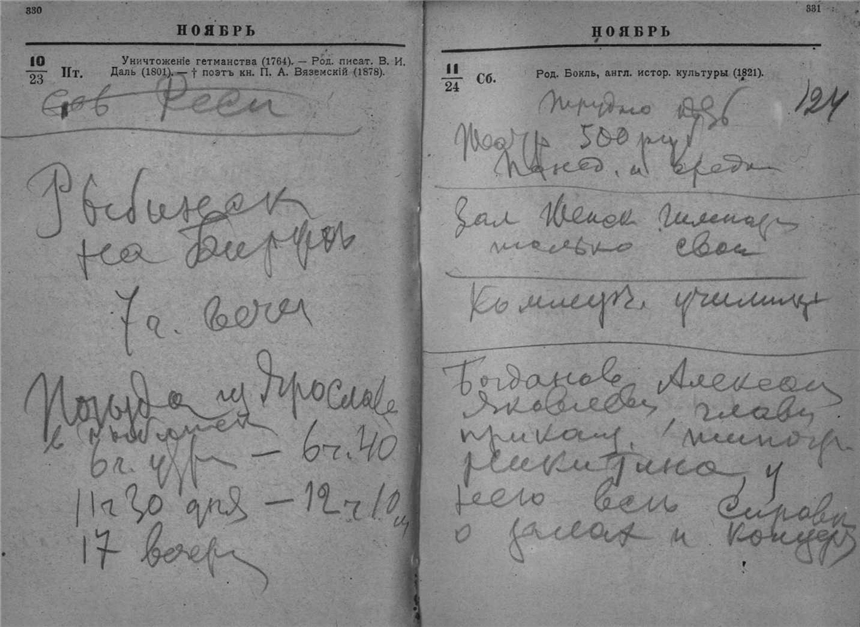 330
НОЯБРЬ
10
23
Пт.
Уничтоженіе гетманства (1764). — Род. писат. В. И.
Даль (1801). — † поэтъ кн. П. А. Вяземскій (1878).
Рыбинск
на Бирж
7 ч. вечи
Поезда из Ярославе
в Рыбинск
6 ч. утр — 6 ч. 40
11 ч 30 дня — 12 ч 10 м
17 вечер
331
НОЯБРЬ
11
24
Сб.
Род. Бокль, англ. истор. культуры (1821).
трудно
124
Театр 500 руб
Понед. и среда
Зал Женск Гимназ
только свои
Коммерч. училищ
Богданов Алексан
Яковлев, главн
приказ. типогр.
Никитина, у
него все справк
о залах и концер